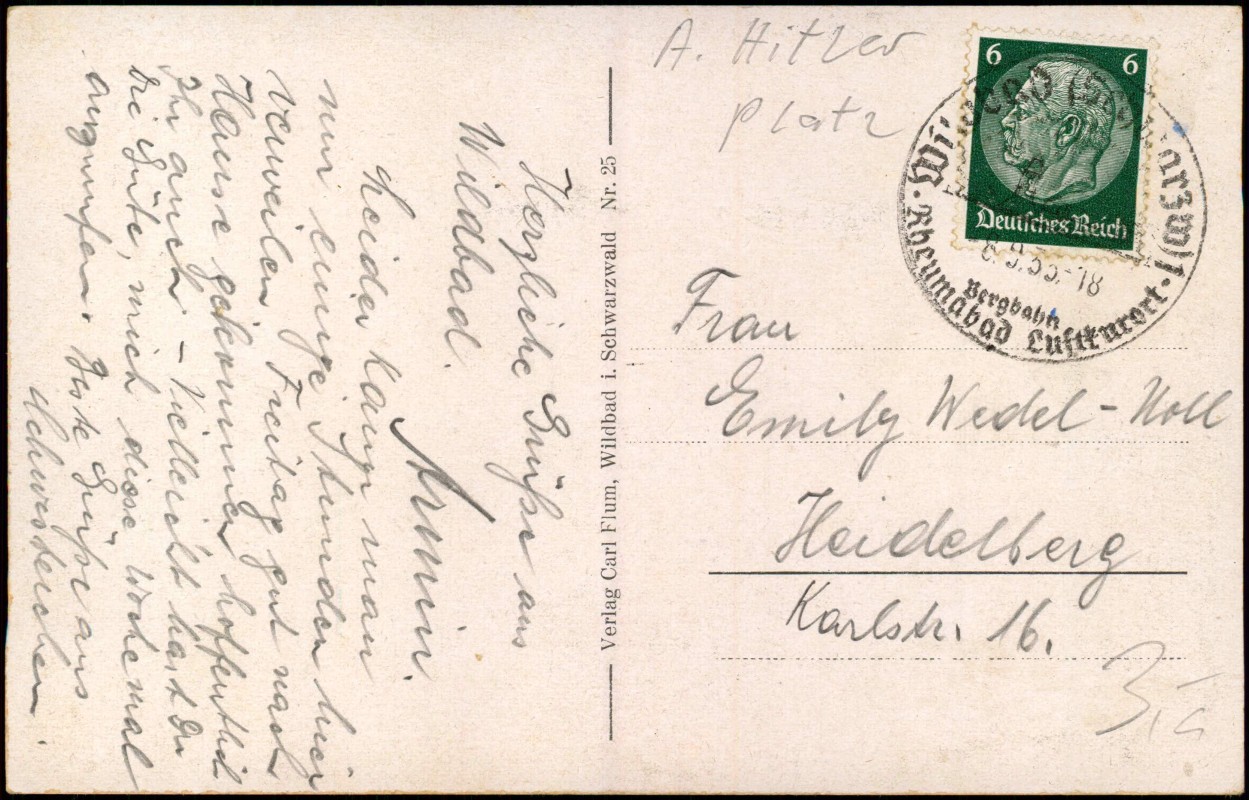 Herzliche Grüße aus
Wildbad.
Armin.
Leider kann man
nur einige Stunden hier
verweilen. Freitag gut nach
Hause gekommen, hoffentlich
Ihr auch – Vielleicht hast Du
die Güte, mich diese Woche mal
anzurufen. Beste Grüße aus
Verlag Carl Flum, Wildbad i. Schwarzwald Nr. 25
A. Hitler
platz
6 6
Deutsches Reich
Wildbad (Schwarzw) 1
8.9.35.-18
Bergbahn
Rheumabad Luftkurort
Frau
Emily Wedel-Noll
Heidelberg
Karlstr. 16.